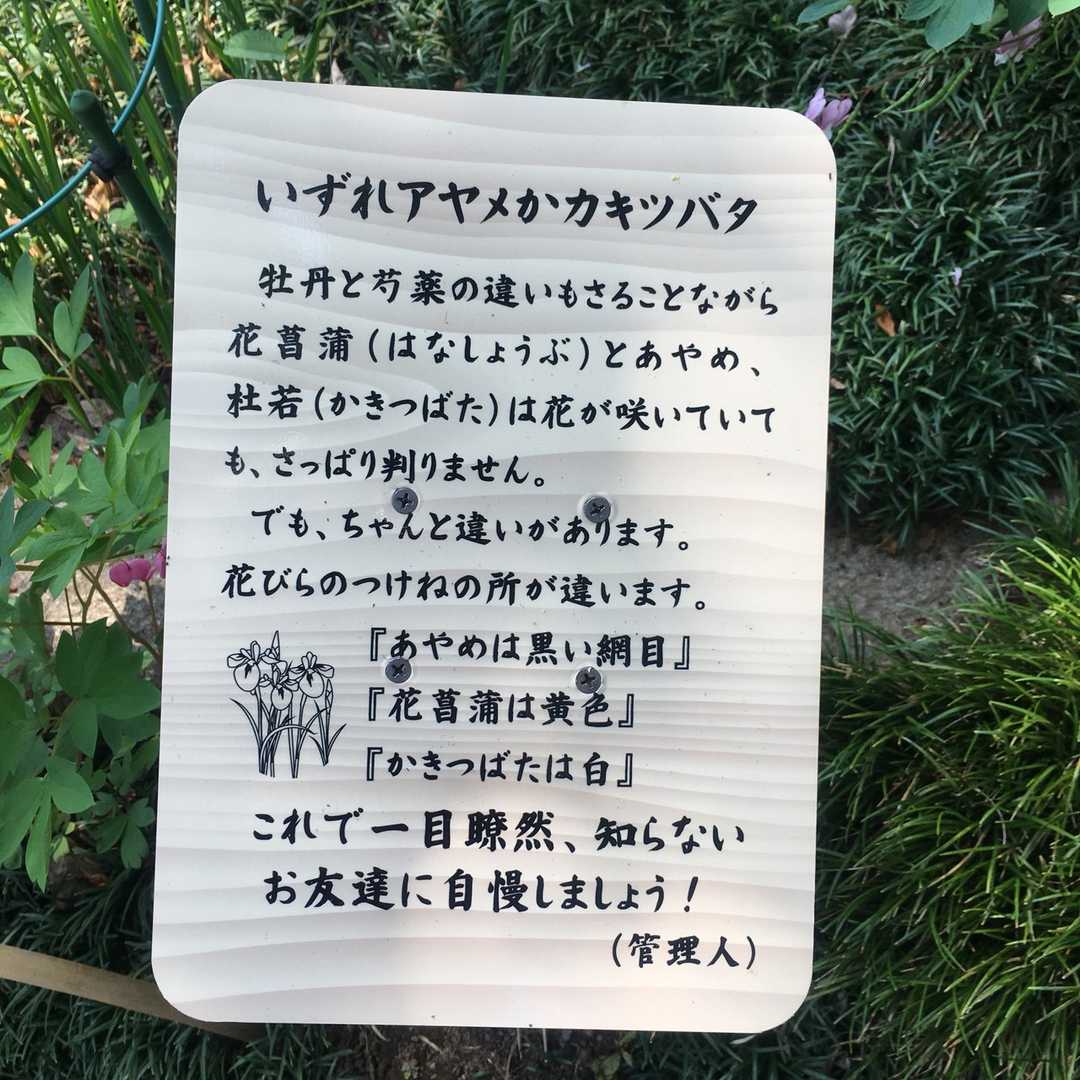 いずれアヤメかカキツバタ
牡丹と芍薬の違いもさることながら
花菖蒲(はなしょうぶ)とあやめ、
杜若(かきつばた)は花が咲いていて
も、さっぱり判りません。
でも、ちゃんと違いがあります。
花びらのつけねの所が違います。
『あやめは黒い網目』
『花菖蒲は黄色』
『かきつばたは白』
これで一目瞭然、知らない
お友達に自慢しましょう!
(管理人)